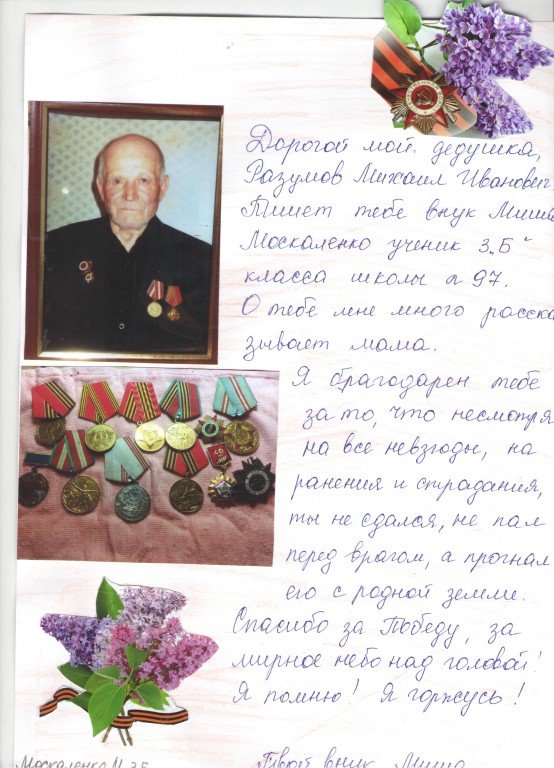 Дорогой мой дедушка,
Разумов Михаил Иванович
Пишет тебе внук Миша
Москаленко ученик 3 „Б“
класса школы № 97.
О тебе мне много расска
зывает мама.
Я благодарен тебе
за то, что несмотря
на все невзгоды, на
ранения и страдания,
ты не сдался, не пал
перед врагом, а прогнал
его с родной земли.
Спасибо за Победу, за
мирное небо над головой!
Я помню! Я горжусь!
Твой внук Миша
Москаленко М. 3Б